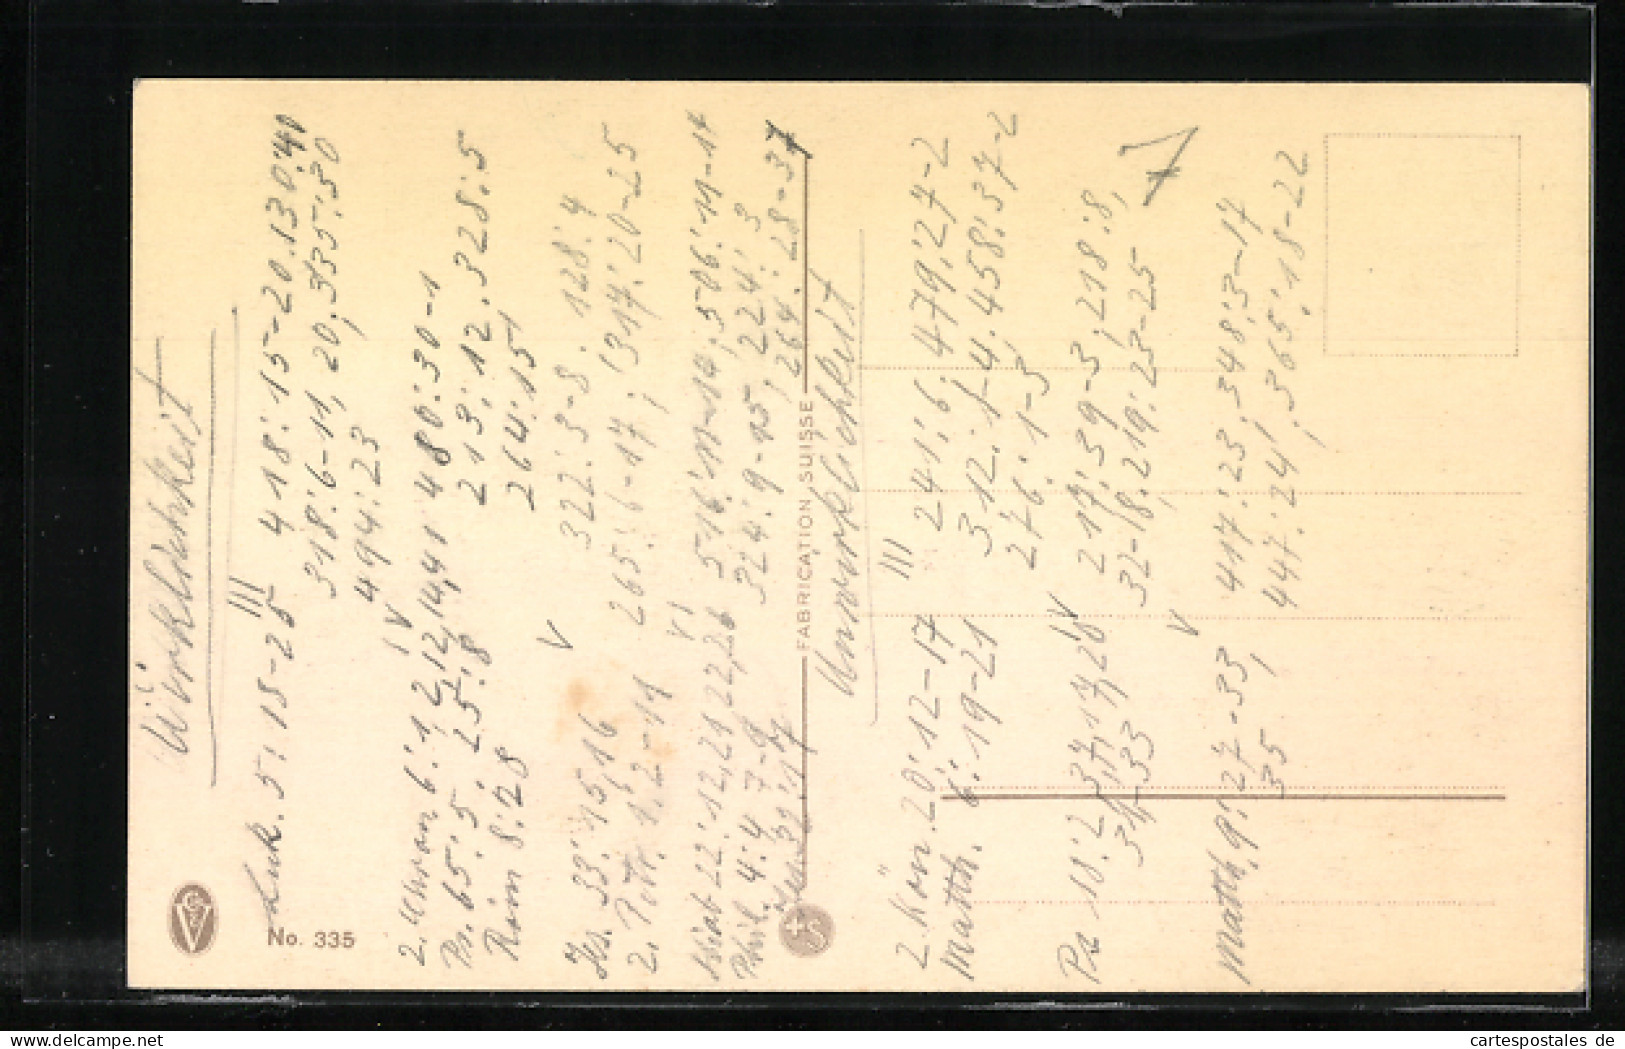 Wirklichkeit
Luk. 5:18-25 III 418:15-20.130:40
318:6-11, 20; 335:30
494:23
IV
2. Chron 6:1 2 12 14, 41 480:30-1
Ps. 65:5 25:8 213:12. 328:5
Röm 8:28 264:15
V
Jes. 33:15,16 322:3-8. 128:4
2. Petr. 1:2-11 265:6-17; 1317:20-25
VI
Hiob 22:12,21 22,26 516:11-14; 506:11-14
Phil. 4:4 7-9 324:9-15, 224:3
Jes 32:17 264:28-32
No. 335
FABRICATION SUISSE
Unwirklichkeit
III
2. Kön. 20:12-17 241:6. 479:27-2
Matth. 6:19-21 312:1-4. 458:37-2
276:1-3
IV
Ps 18:2 217:39-3, 218:8,
31-33 32-18, 219:23-25
V
Matth. 9:27-33, 417:23, 348:3-17
35 447:24, 365:18-22
www.cartespostales.de